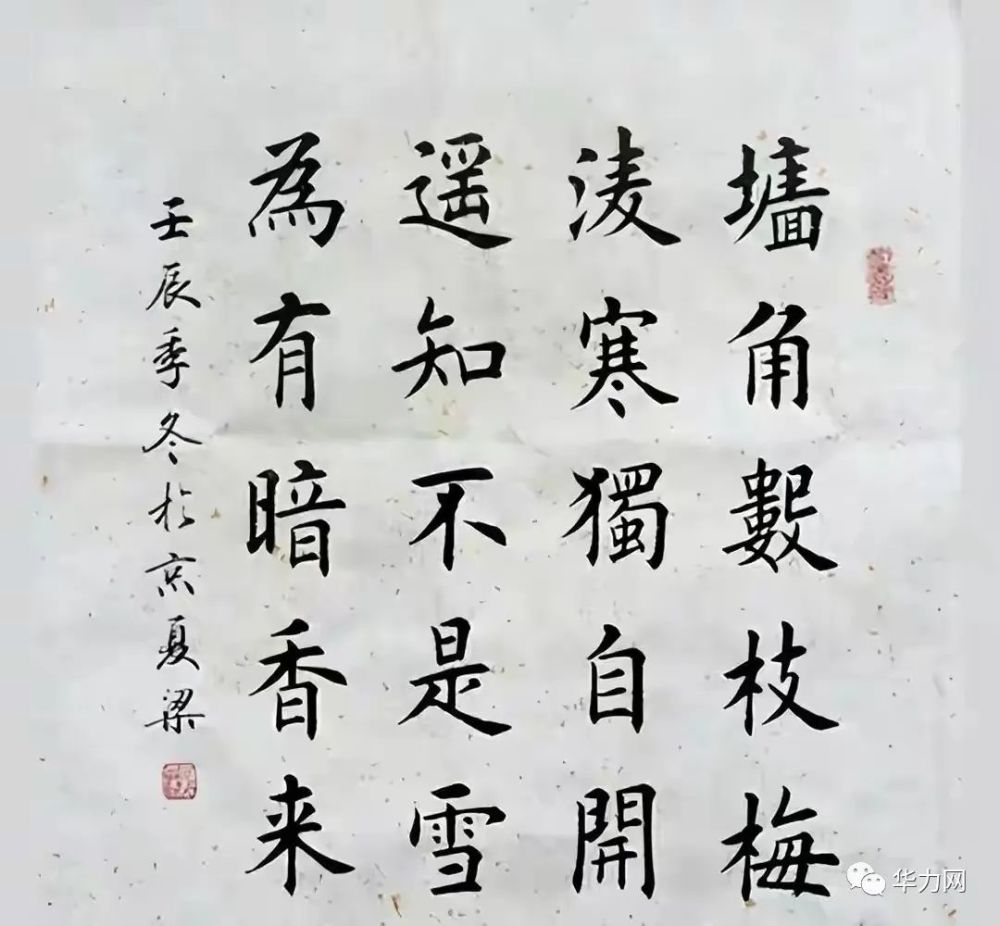 墻角數枝梅
淩寒獨自開
遥知不是雪
為有暗香来
壬辰季冬於京夏梁
华力网